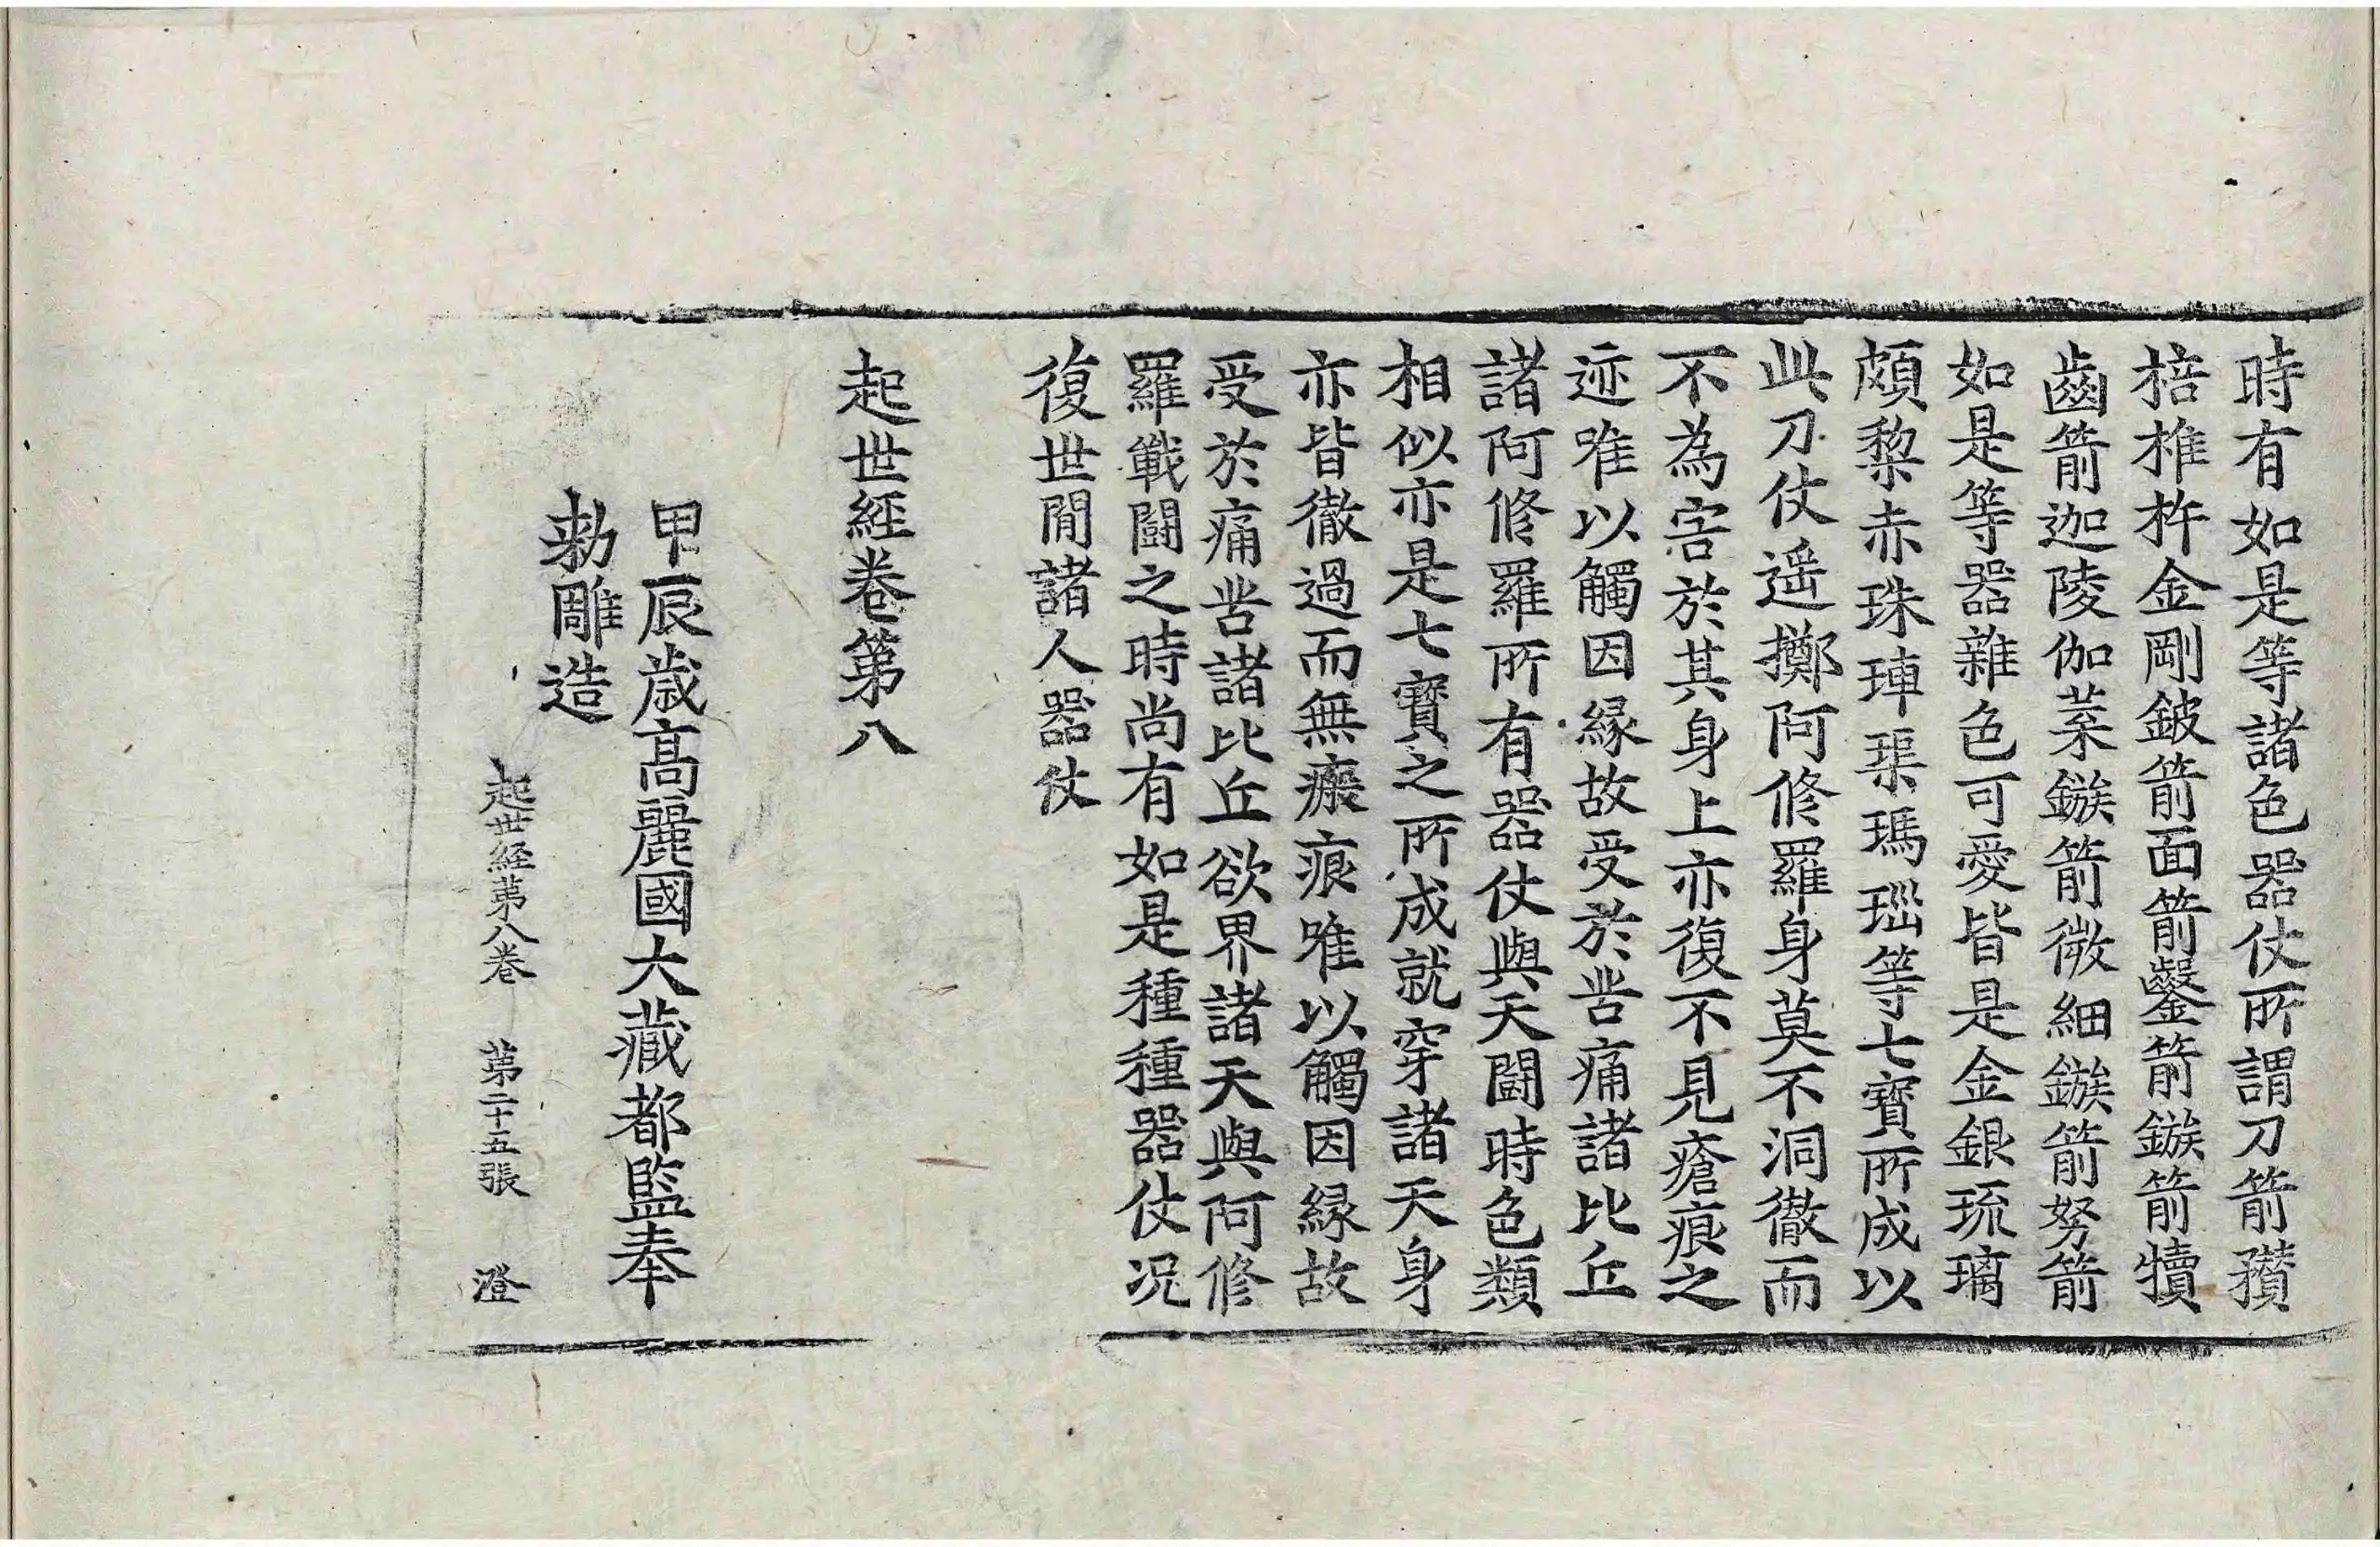 時有如是等諸色器仗所謂刀箭矟
棓椎杵金剛鈹箭面箭鑿箭鏃箭犢
齒箭迦陵伽葉鏃箭微細鏃箭努箭
如是等器雜色可愛皆是金銀琉璃
頗黎赤珠硨磲瑪瑙等七寶所成以
此刀仗遥擲阿修羅身莫不洞徹而
不為害於其身上亦復不見瘡痕之
迹唯以觸因緣故受於苦痛諸比丘
諸阿修羅所有器仗與天鬪時色類
相似亦是七寶之所成就穿諸天身
亦皆徹過而無瘢痕唯以觸因緣故
受於痛苦諸比丘欲界諸天與阿修
羅戰鬪之時尚有如是種種器仗况
復世閒諸人器仗
起世經卷第八
甲辰歲高麗國大藏都監奉
勅雕造
起世経苐八卷 苐二十五張 澄